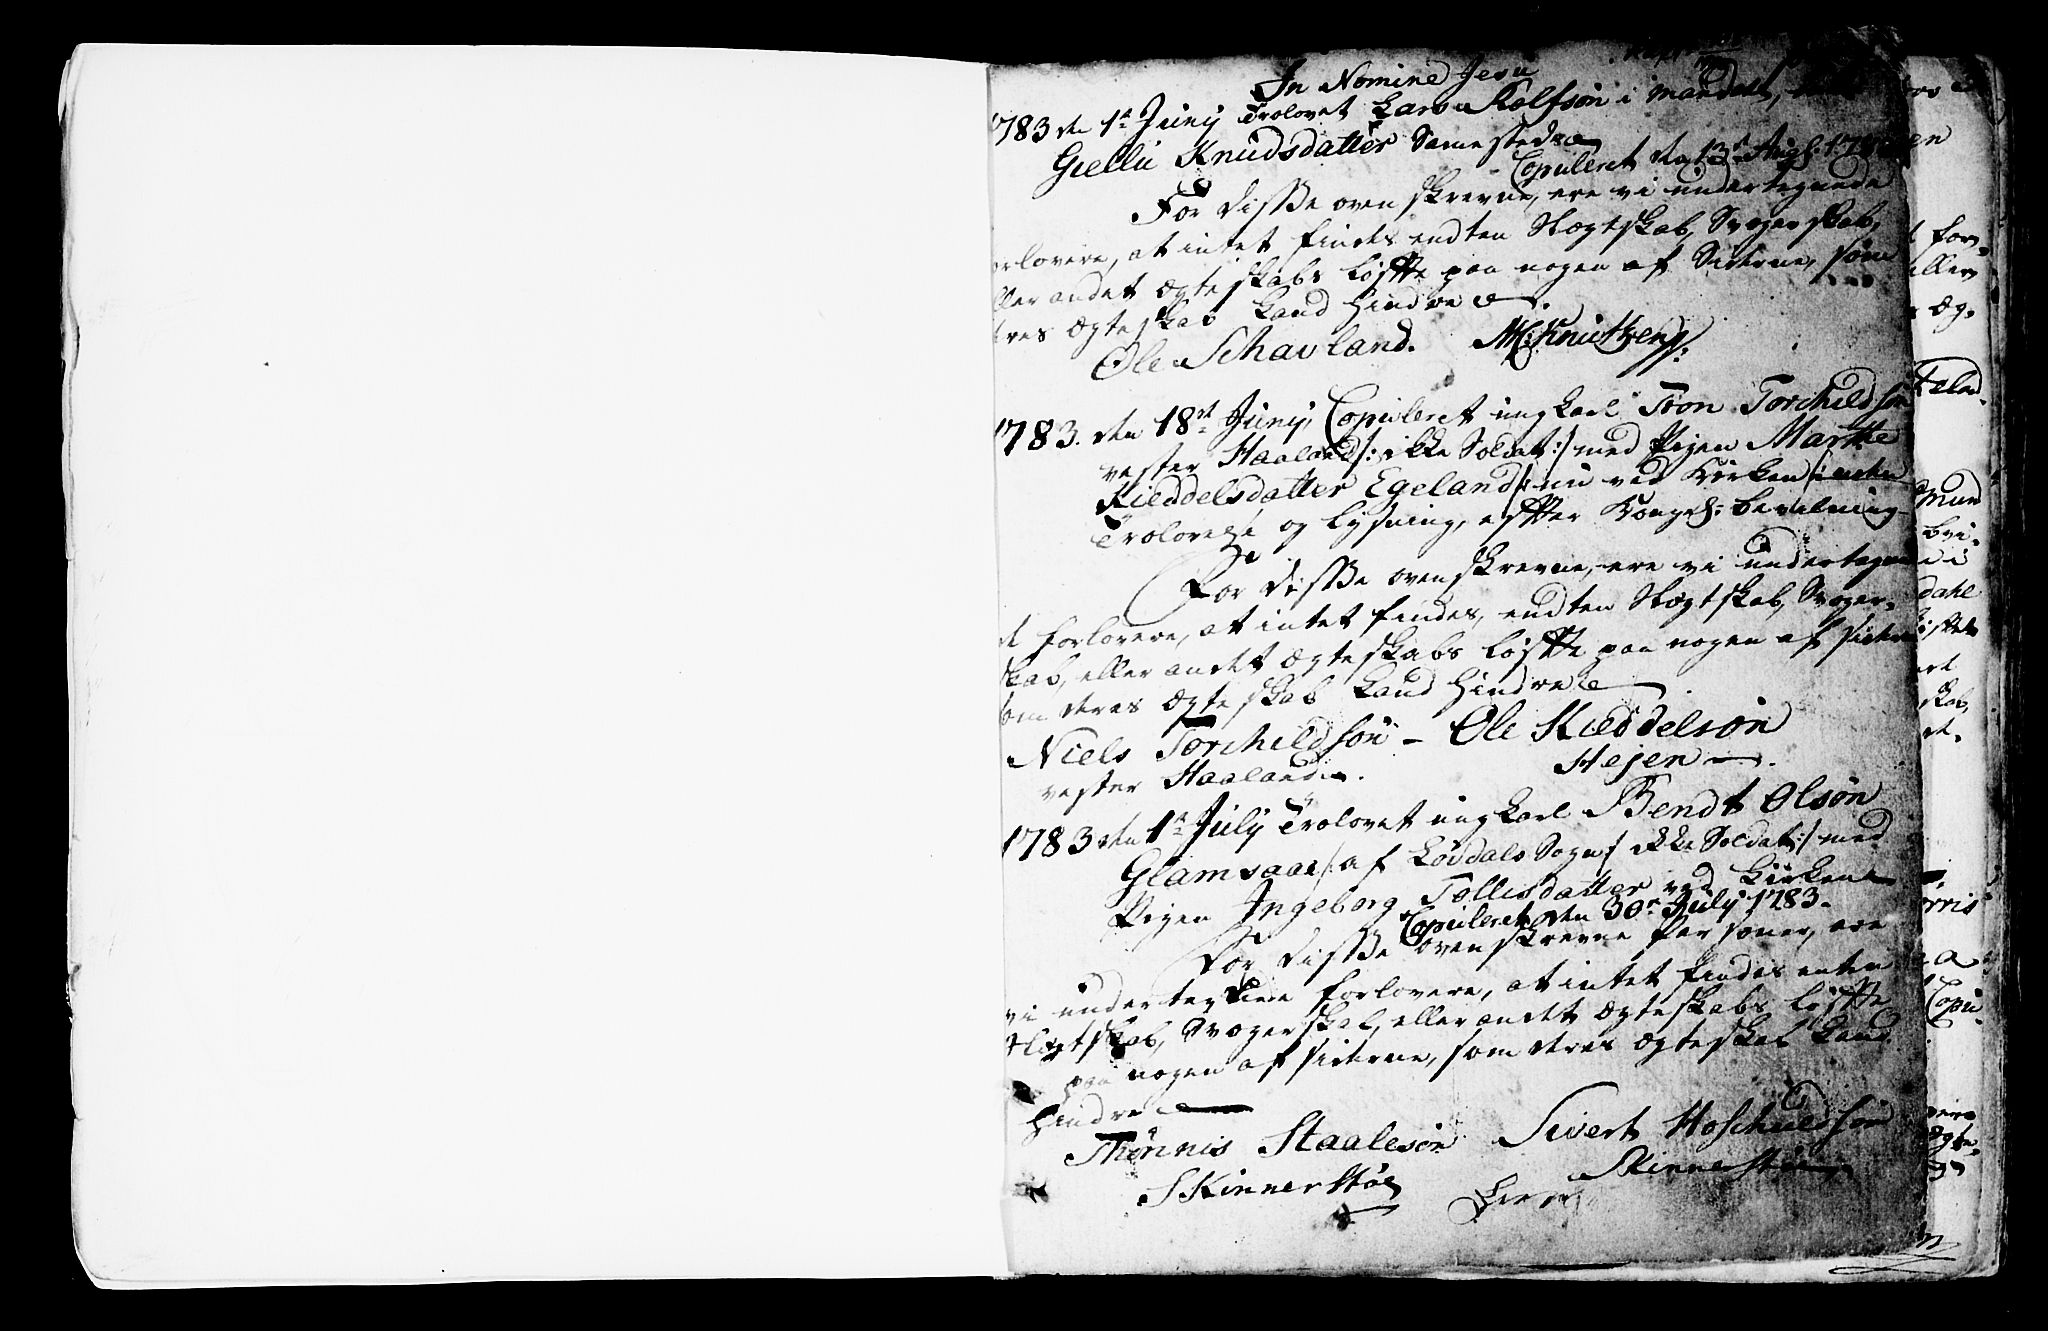 In Nomine Jesu
1783 den 1te Junij Trolovet Lars Rolfsøn i Mandal,
Giellu Knudsdatter Samestedz
Copuleret den 13de Aug:
For disse ovenskrevne, ere vi undertegnede
orlovere, at intet findes endten Slegtskab, Svogerskab,
ller andet Ægteskabs Løfte paa nogen af Siderne, som
eres Ægteskab kand Hindre
Ole Schavland. Knutzen
1783. den 18de Junij, Copuleret ungkarl Tron Torchildsøn
vester Haaland /: ikke Soldat :/ med Pigen Marthe
Kieddelsdatter Egeland /: nu ved Kirken uden
Trolovelse og Lysning, efter Kongel: bevilning
For disse ovenskrevne, ere vi undertegne
de Forlovere, at intet findes, endten Slegtskab, Svoger-
skab, eller andet Ægteskabs Løfte paa nogen af Siderne
som deres Ægteskab kand Hindre
Niels Torchildsøn - Ole Kieddelsøn
vester Haaland. Hejen
1783 den 1te Julij Trolovet ungkarl Bendt Olsøn
Glamsaae /: af Løvdals Sogn ikke Soldat :/ med
Pigen Ingeborg Tollisdatter ved Kirken
Copuleret den 30te Julij 1783.
For disse ovenskrevne Personer, ere
vi undertegnede Forlovere, at intet findes enten
Slegtskab, Svogerskab, eller andet Ægteskabs Løfte
paa nogen af Siderne, som deres Ægteskab kand
Hindre
Thønnis Staalesøn Sivert Hoschuldsøn
Skinnerstøe Skinnerstøe